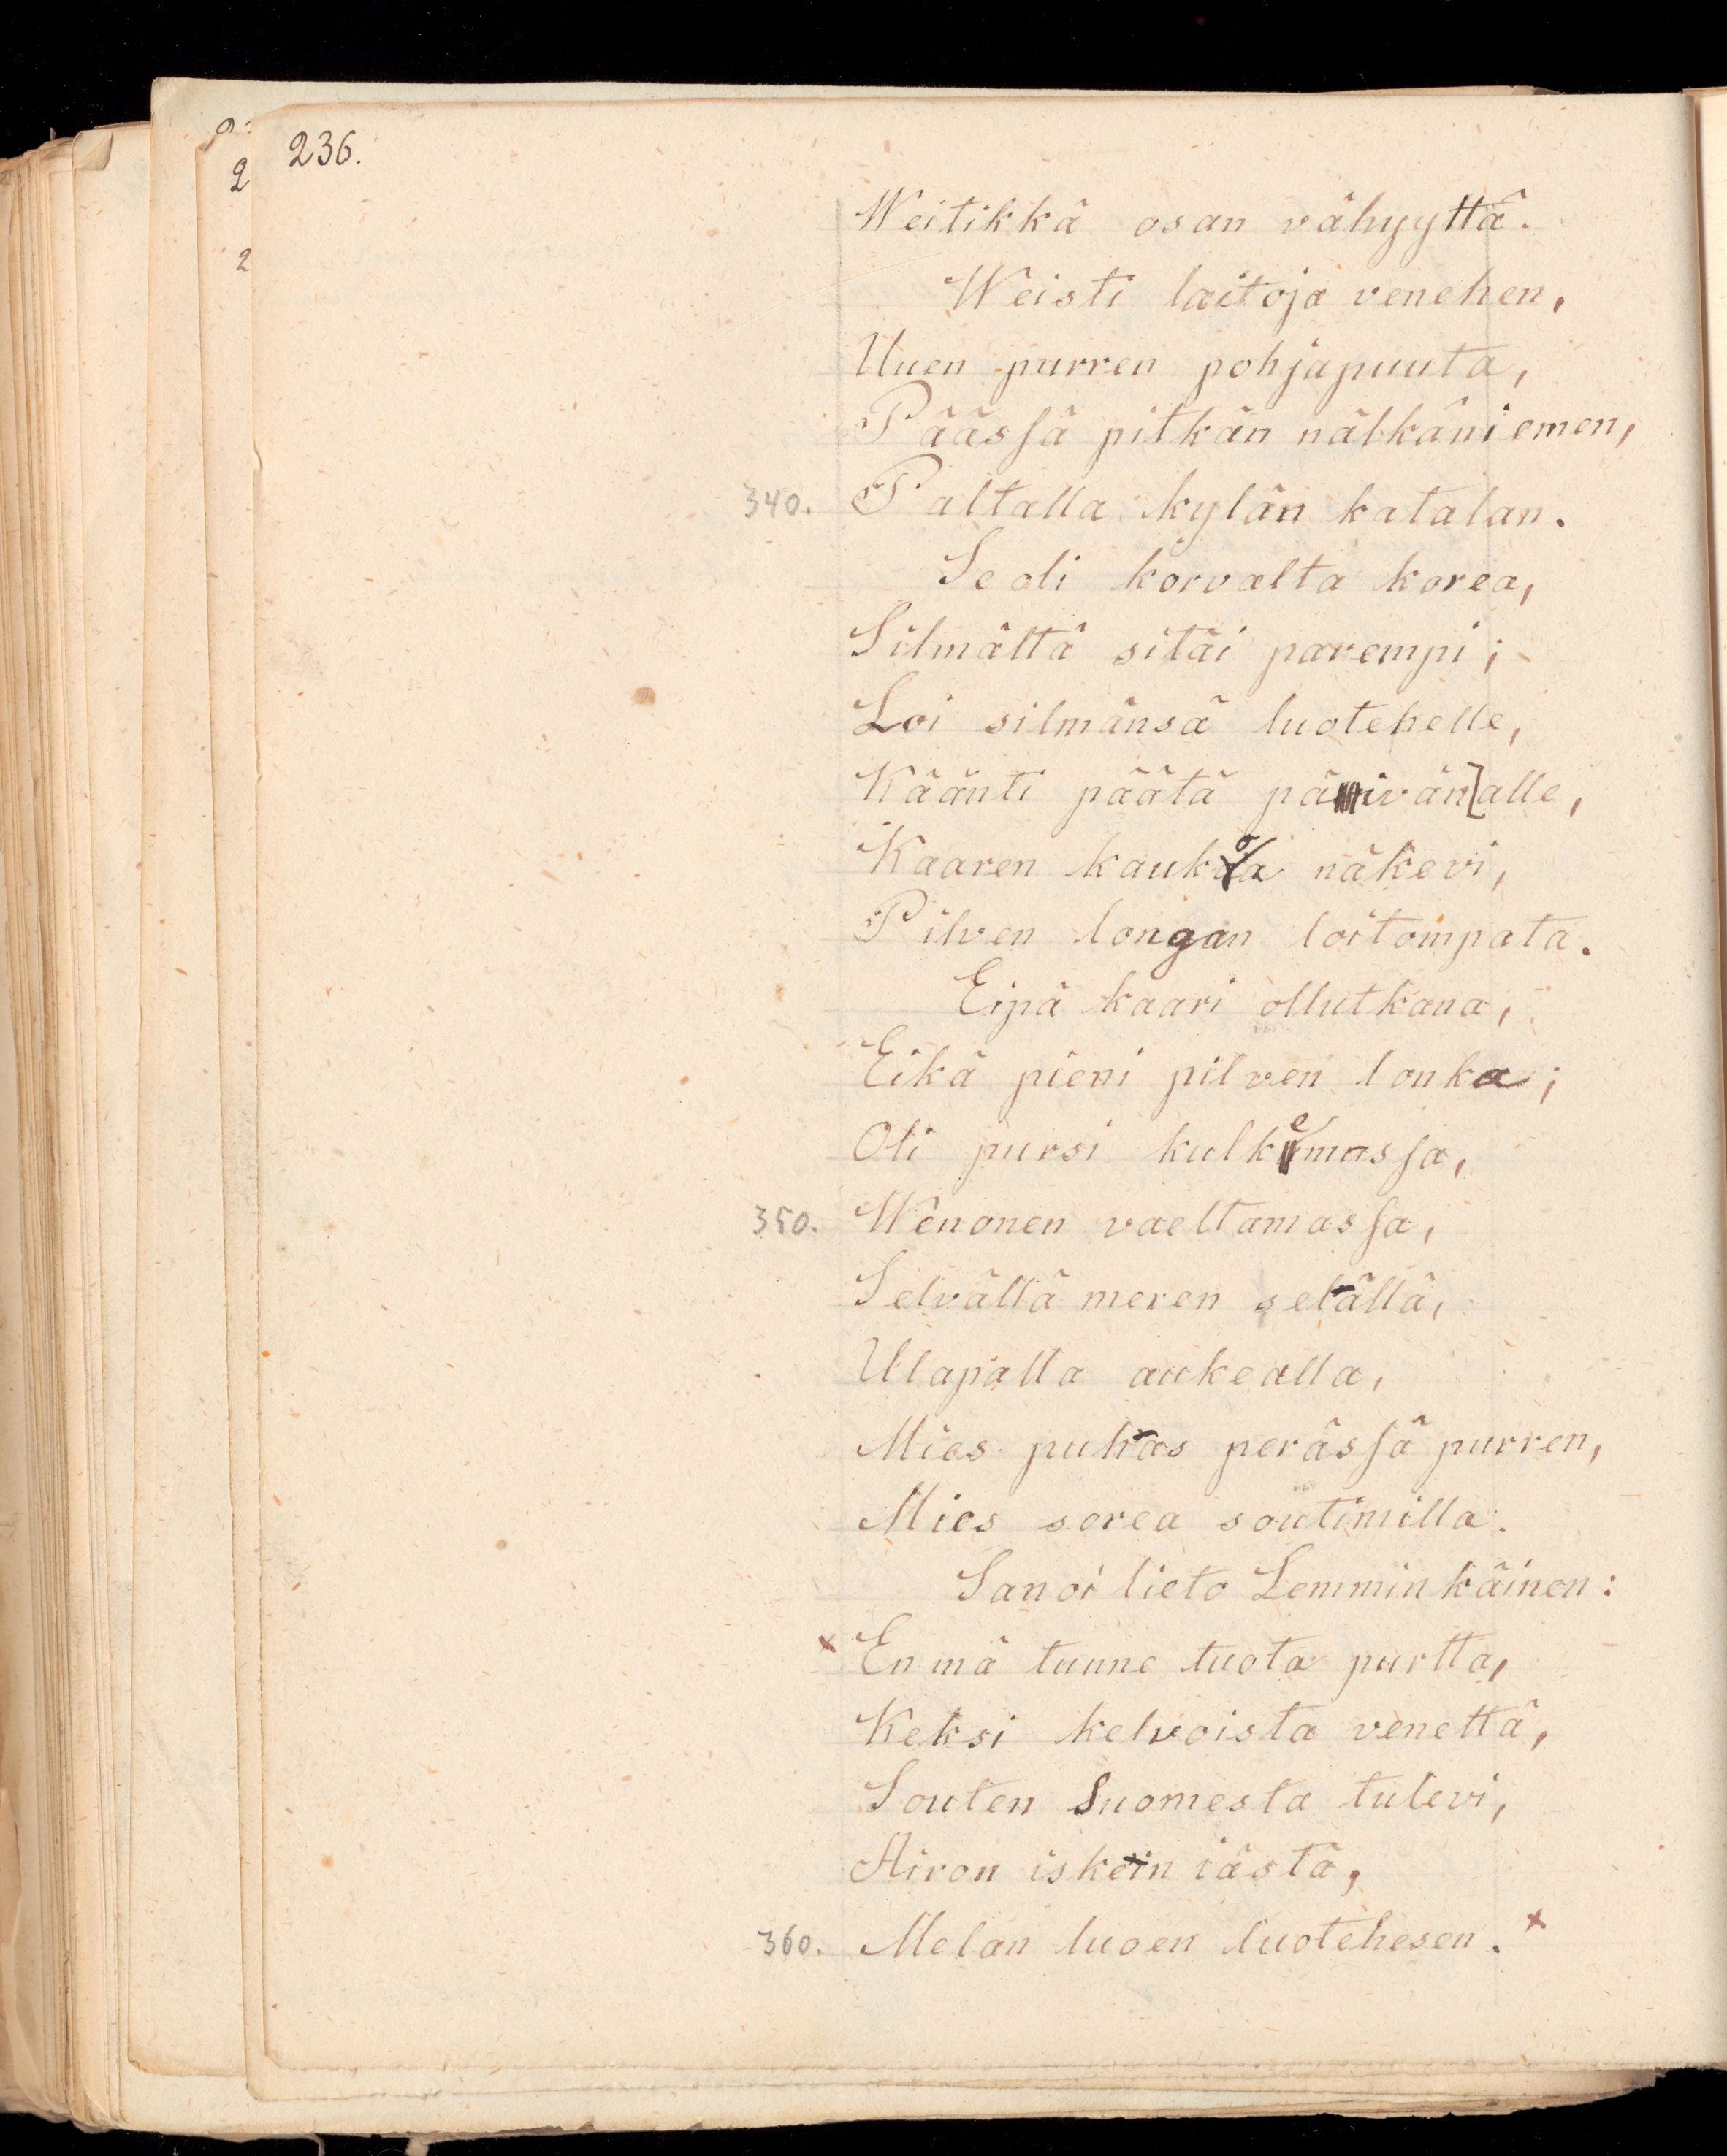 236.
2
2
Weitikkä osan vähyyttä.
Weisti laitoja venehen,
Uuen purren pohjapuuta,
Päässä pitkän nälkäniemen,
340. Paltalla kylän katalan.
Se oli korvalta korea,
Silmältä sitäi parempi;
Loi silmänsä luotehelle,
Käänti päätä päivän alle,
Kaaren kaukoa näkevi,
Pilven longan loitompata.
Eipä kaari ollutkana,
Eikä pieni pilven lonka;
Oli pursi kulkemassa,
350. Wenonen vaeltamassa,
Selvällä meren selällä,
Ulapalla aukealla,
Mies puhas perässä purren,
Mies sorea soutimilla.
Sanoi lieto Lemminkäinen:
x En mä tunne tuota purtta,
Keksi kelvoista venettä,
Souten Suomesta tulevi,
Airon iskein iästä,
360. Melan luoen luotehesen. x